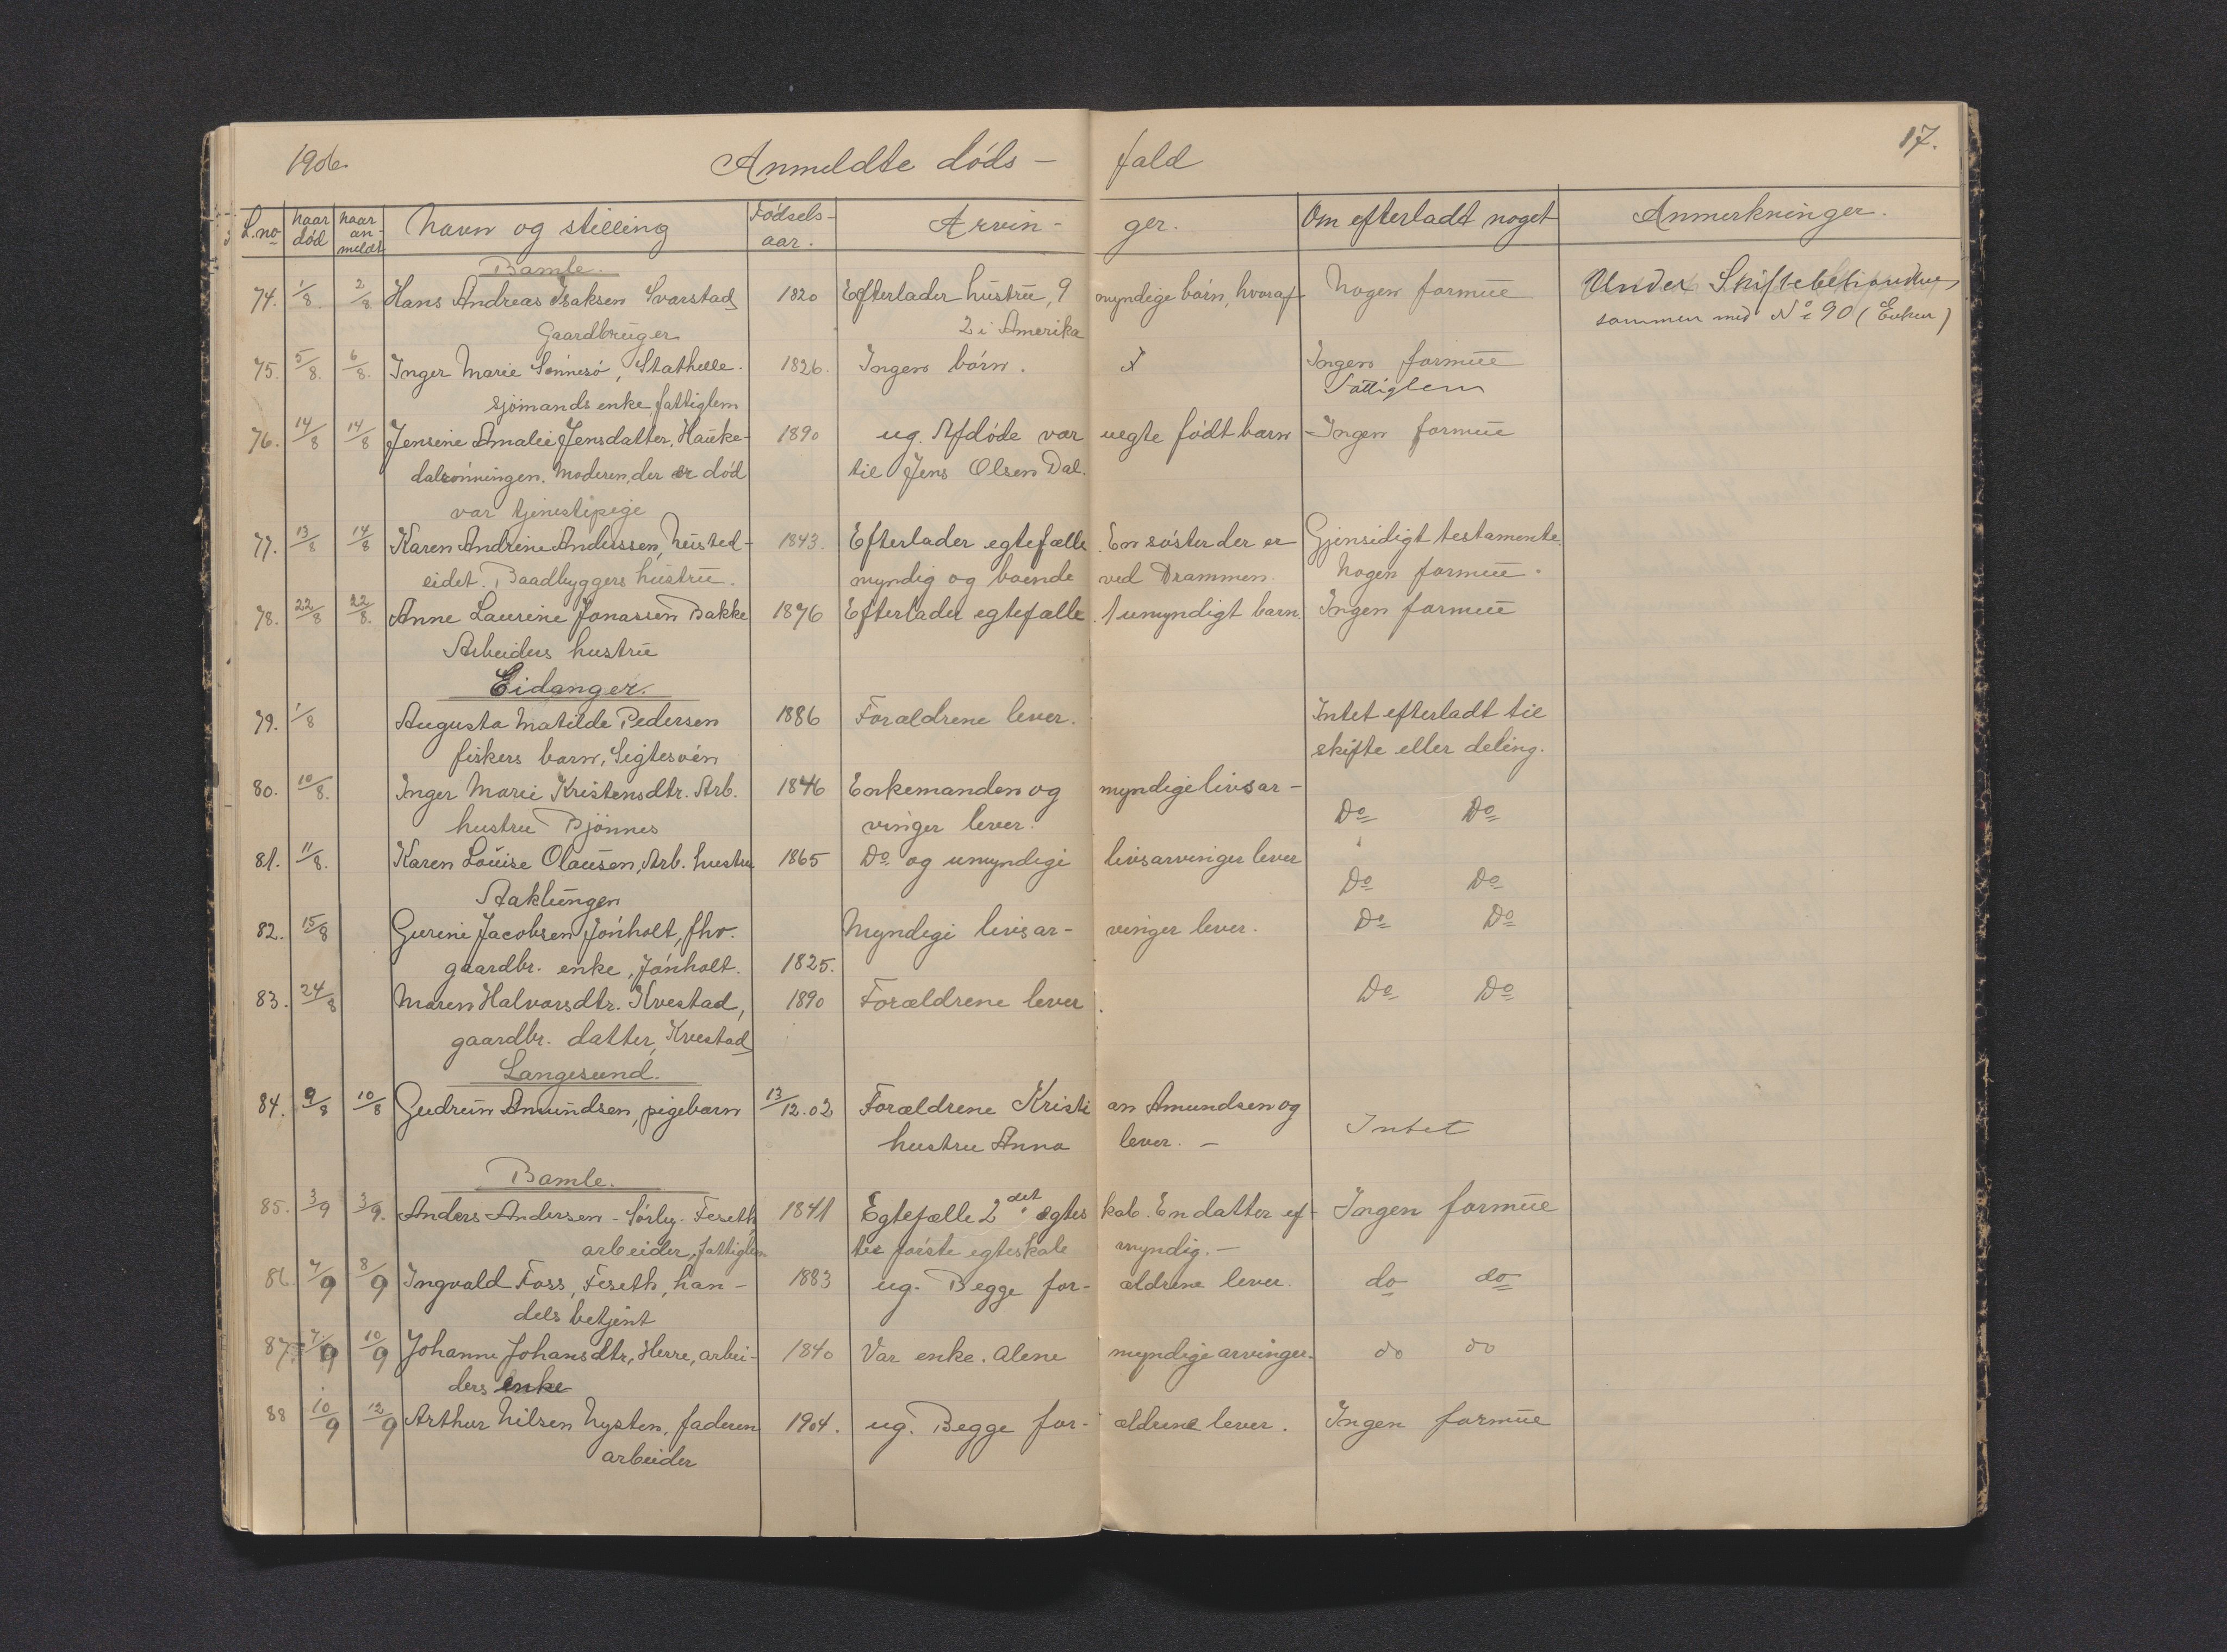 1906. Anmeldte döds - fald 17.
L.no naar död naar an- meldt Navn og stilling Födsels- aar. Arvin- ger. Om efterladt noget Anmerkninger.
Bamle.
74. 1/8 2/8 Hans Andreas Isaksen Svarstad 1820 Efterlader hustru, 9 myndige börn, hvoraf Nogen formue Under Skiftebehandling
Gaardbruger 2 i Amerika sammen med No 90 (Enken)
75. 5/8. 6/8. Inger Marie Sönnesö, Stathelle. 1826. Ingen börn. Ingen formue
sjömands enke, fattiglem Fattiglem
76. 14/8 14/8 Jensine Amalie Jensdatter, Hauke- 1890 ug. Afdöde var uegte födt barn Ingen formue
dalsrönningen. Moderen, der er död til Jens Olsen Dal.
var tjenestepige
77. 13/8 14/8 Karen Andrine Anderssen, Nusted- 1843. Efterlader egtefælle. En söster der er Gjensidigt testamente.
eidet. Baadbyggers hustru. myndig og boende ved Drammen. Nogen formue.
78. 22/8 22/8. Anne Laurine Jonassen Bakke 1876 Efterlader egtefælle. 1 umyndigt barn. Ingen formue
Arbeiders hustru
Eidanger.
79. 1/8 Augusta Matilde Pedersen 1886 Forældrene lever. Intet efterladt til
fiskers barn, Sigtesöen skifte eller deling.
80. 10/8. Inger Marie Kristensdtr. Arb. 1846 Enkemanden og myndige livsar-
hustru Bjönnes vinger lever. Do Do
81. 11/8. Karen Louise Olausen, Arb. hustru 1865 Do og umyndige livsarvinger lever
Aaklungen Do Do
82. 15/8 Gurine Jacobsen Jönholt, fhv. Myndige livsar- vinger lever. Do Do
gaardbr. enke, Jönholt. 1825.
83. 24/8 Maren Halvorsdtr. Kvestad, 1890 Forældrene lever. Do Do
gaardbr. datter, Kvestad
Langesund.
84. 9/8 10/8 Gudrun Amundsen, pigebarn 13/12.02 Forældrene Kristi an Amundsen og
hustru Anna lever. - Intet
Bamle.
85. 3/9 3/9. Anders Andersen - Sörby - Feseth 1841 Egtefælle 2det egtes kab. En datter ef- Ingen formue
arbeider, fattiglem ter förste egteskab myndig. -
86. 7/9 8/9 Ingvald Foss, Feseth, han- 1883 ug. Begge for- ældrene lever. do do
dels betjent
87. 7/9 10/9 Johanne Johansdtr, Herre, arbei- 1840 Var enke. Alene myndige arvinger. do do
ders enke
88 10/9 12/9 Arthur Nilsen Nysten, faderen 1904. ug. Begge for- ældrene lever. Ingen formue
arbeider